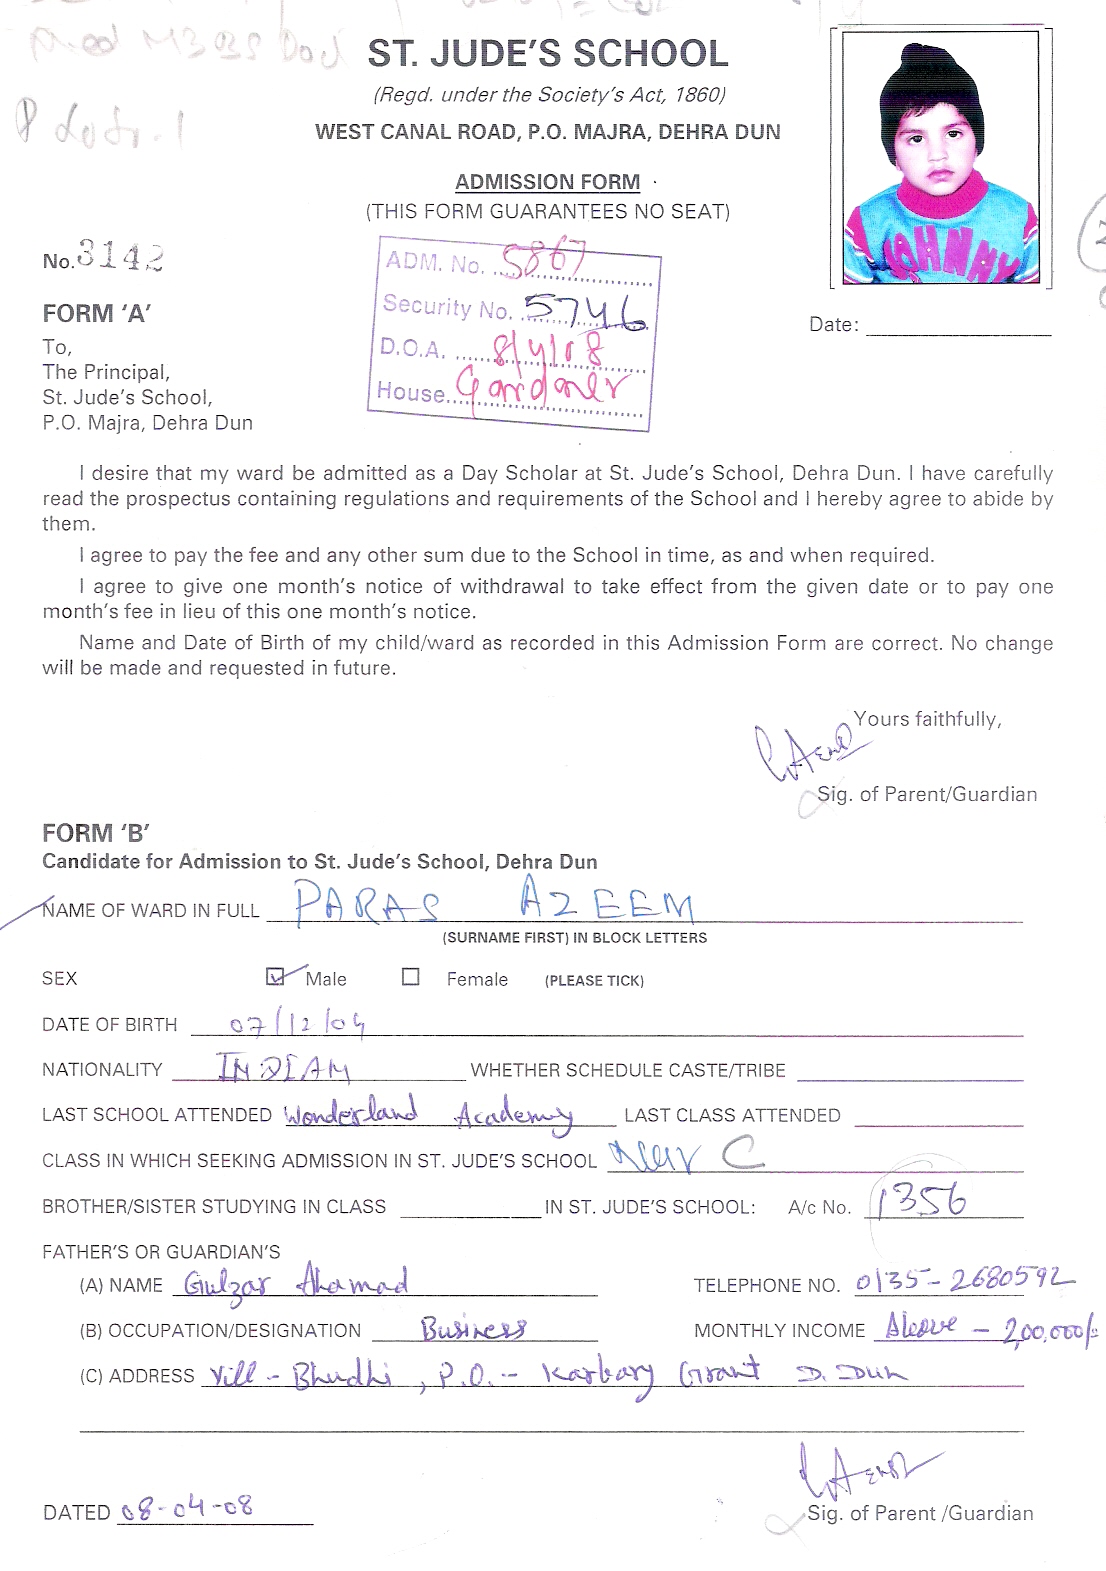 ST. JUDE'S SCHOOL
(Regd. under the Society's Act, 1860)
WEST CANAL ROAD, P.O. MAJRA, DEHRA DUN
ADMISSION FORM
(THIS FORM GUARANTEES NO SEAT)
No. 3142
ADM. No. 5867
Security No. 5746
D.O.A. 8/4/08
House Gardner
JOHNNY
Date:
FORM 'A'
To,
The Principal,
St. Jude's School,
P.O. Majra, Dehra Dun
I desire that my ward be admitted as a Day Scholar at St. Jude's School, Dehra Dun. I have carefully
read the prospectus containing regulations and requirements of the School and I hereby agree to abide by
them.
I agree to pay the fee and any other sum due to the School in time, as and when required.
I agree to give one month's notice of withdrawal to take effect from the given date or to pay one
month's fee in lieu of this one month's notice.
Name and Date of Birth of my child/ward as recorded in this Admission Form are correct. No change
will be made and requested in future.
Yours faithfully,
Sig. of Parent/Guardian
FORM 'B'
Candidate for Admission to St. Jude's School, Dehra Dun
NAME OF WARD IN FULL PARAS AZEEM
(SURNAME FIRST) IN BLOCK LETTERS
SEX Male Female (PLEASE TICK)
DATE OF BIRTH 07/12/04
NATIONALITY INDIAN WHETHER SCHEDULE CASTE/TRIBE
LAST SCHOOL ATTENDED Wonderland Academy LAST CLASS ATTENDED
CLASS IN WHICH SEEKING ADMISSION IN ST. JUDE'S SCHOOL Nur C
BROTHER/SISTER STUDYING IN CLASS IN ST. JUDE'S SCHOOL: A/c No. 1356
FATHER'S OR GUARDIAN'S
(A) NAME Gulzar Ahamad TELEPHONE NO. 0135-2680592
(B) OCCUPATION/DESIGNATION Business MONTHLY INCOME Above - 2,00,000/-
(C) ADDRESS Vill - Bhudhi, P.O. - Karbary Grant D. Dun
DATED 08-04-08
Sig. of Parent /Guardian